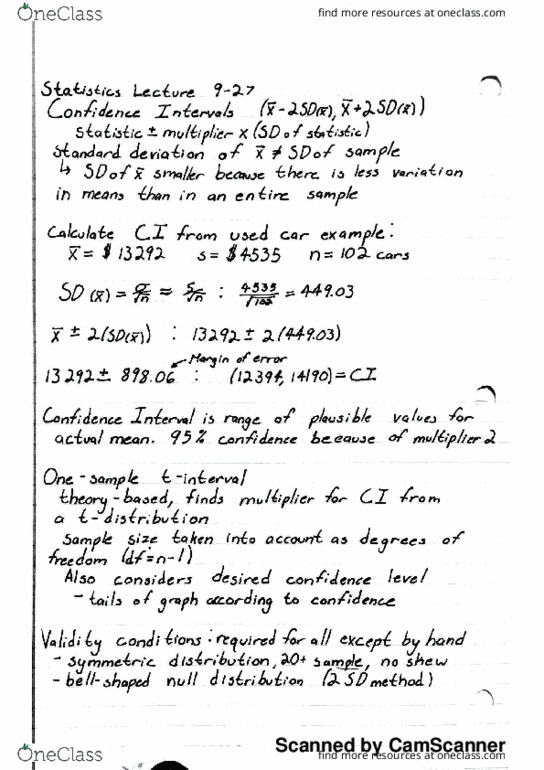 OneClass
find more resources at oneclass.com
Statistics Lecture 9-27
Confidence Intervals (x̄-2SD(x̄), x̄+2SD(x̄))
statistic ± multiplier x (SD of statistic)
Standard deviation of x̄ ≠ SD of sample
↳ SD of x̄ smaller because there is less variation
in means than in an entire sample
Calculate CI from used car example:
x̄ = $13292 s = $4535 n = 102 cars
SD (x̄) = σ/√n ≈ s/√n : 4535/√102 = 449.03
x̄ ± 2(SD(x̄)) : 13292 ± 2(449.03)
Margin of error
13292 ± 898.06 : (12394, 14190) = CI
Confidence Interval is range of plausible values for
actual mean. 95% confidence because of multiplier 2
One-sample t-interval
theory-based, finds multiplier for CI from
a t-distribution
Sample size taken into account as degrees of
freedom (df=n-1)
Also considers desired confidence level
- tails of graph according to confidence
Validity conditions: required for all except by hand
- symmetric distribution, 20+ sample, no skew
- bell-shaped null distribution (2 SD method)
Scanned by CamScanner
OneClass
find more resources at oneclass.com